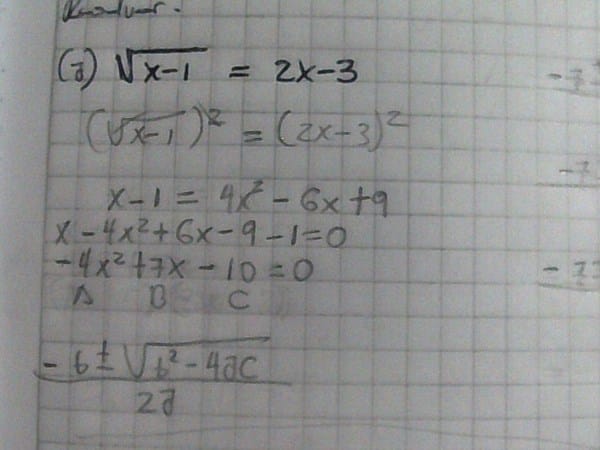 Resolver.
(a) √(x-1) = 2x-3
(√(x-1))² = (2x-3)²
x-1 = 4x² - 6x+9
x-4x²+6x-9-1=0
-4x²+7x-10=0
A B C
(-b ± √(b²-4ac))/(2a)